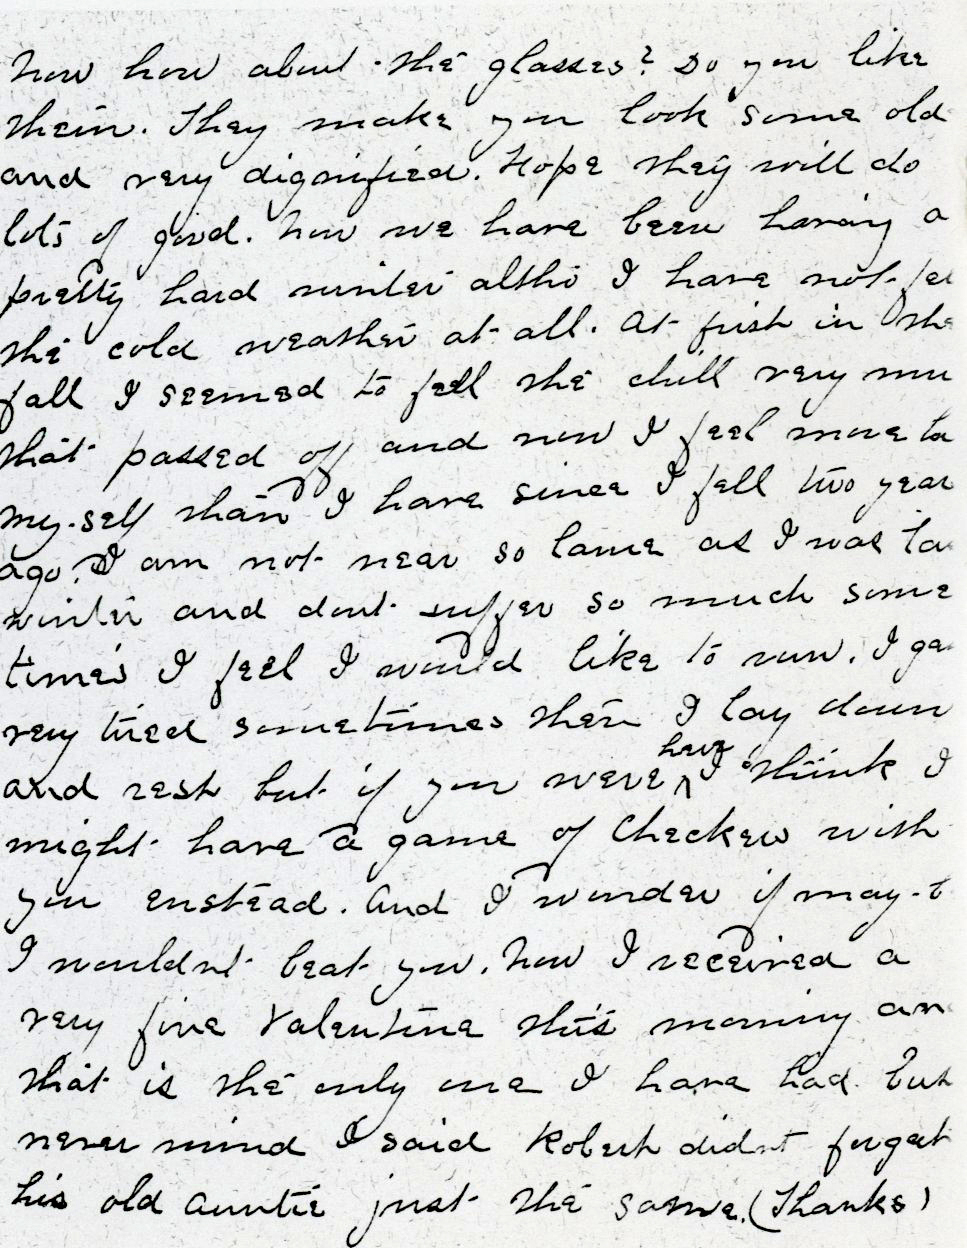 Now how about the glasses? Do you like
them. They make you look some old
and very dignified. Hope they will do
lots of good. Now we have been having a
pretty hard winter altho I have not fel
the cold weather at all. At firsh in the
fall I seemed to fell the chill very mu
that passed off and now I feel more la
my-self than I have since I fell two year
ago. I am not near so lame as I was la
winter and dont suffer so much some
times I feel I would like to run. I ge
very tired sometimes then I lay down
and resh but if you were here I think I
might have a game of Checkers with
you enstead. And I wonder if may-b
I wouldnt beat you. Now I received a
very fine Valentine this morning an
that is the only one I have had but
never mind I said Robert didnt forget
his old auntie just the same. (Thanks)